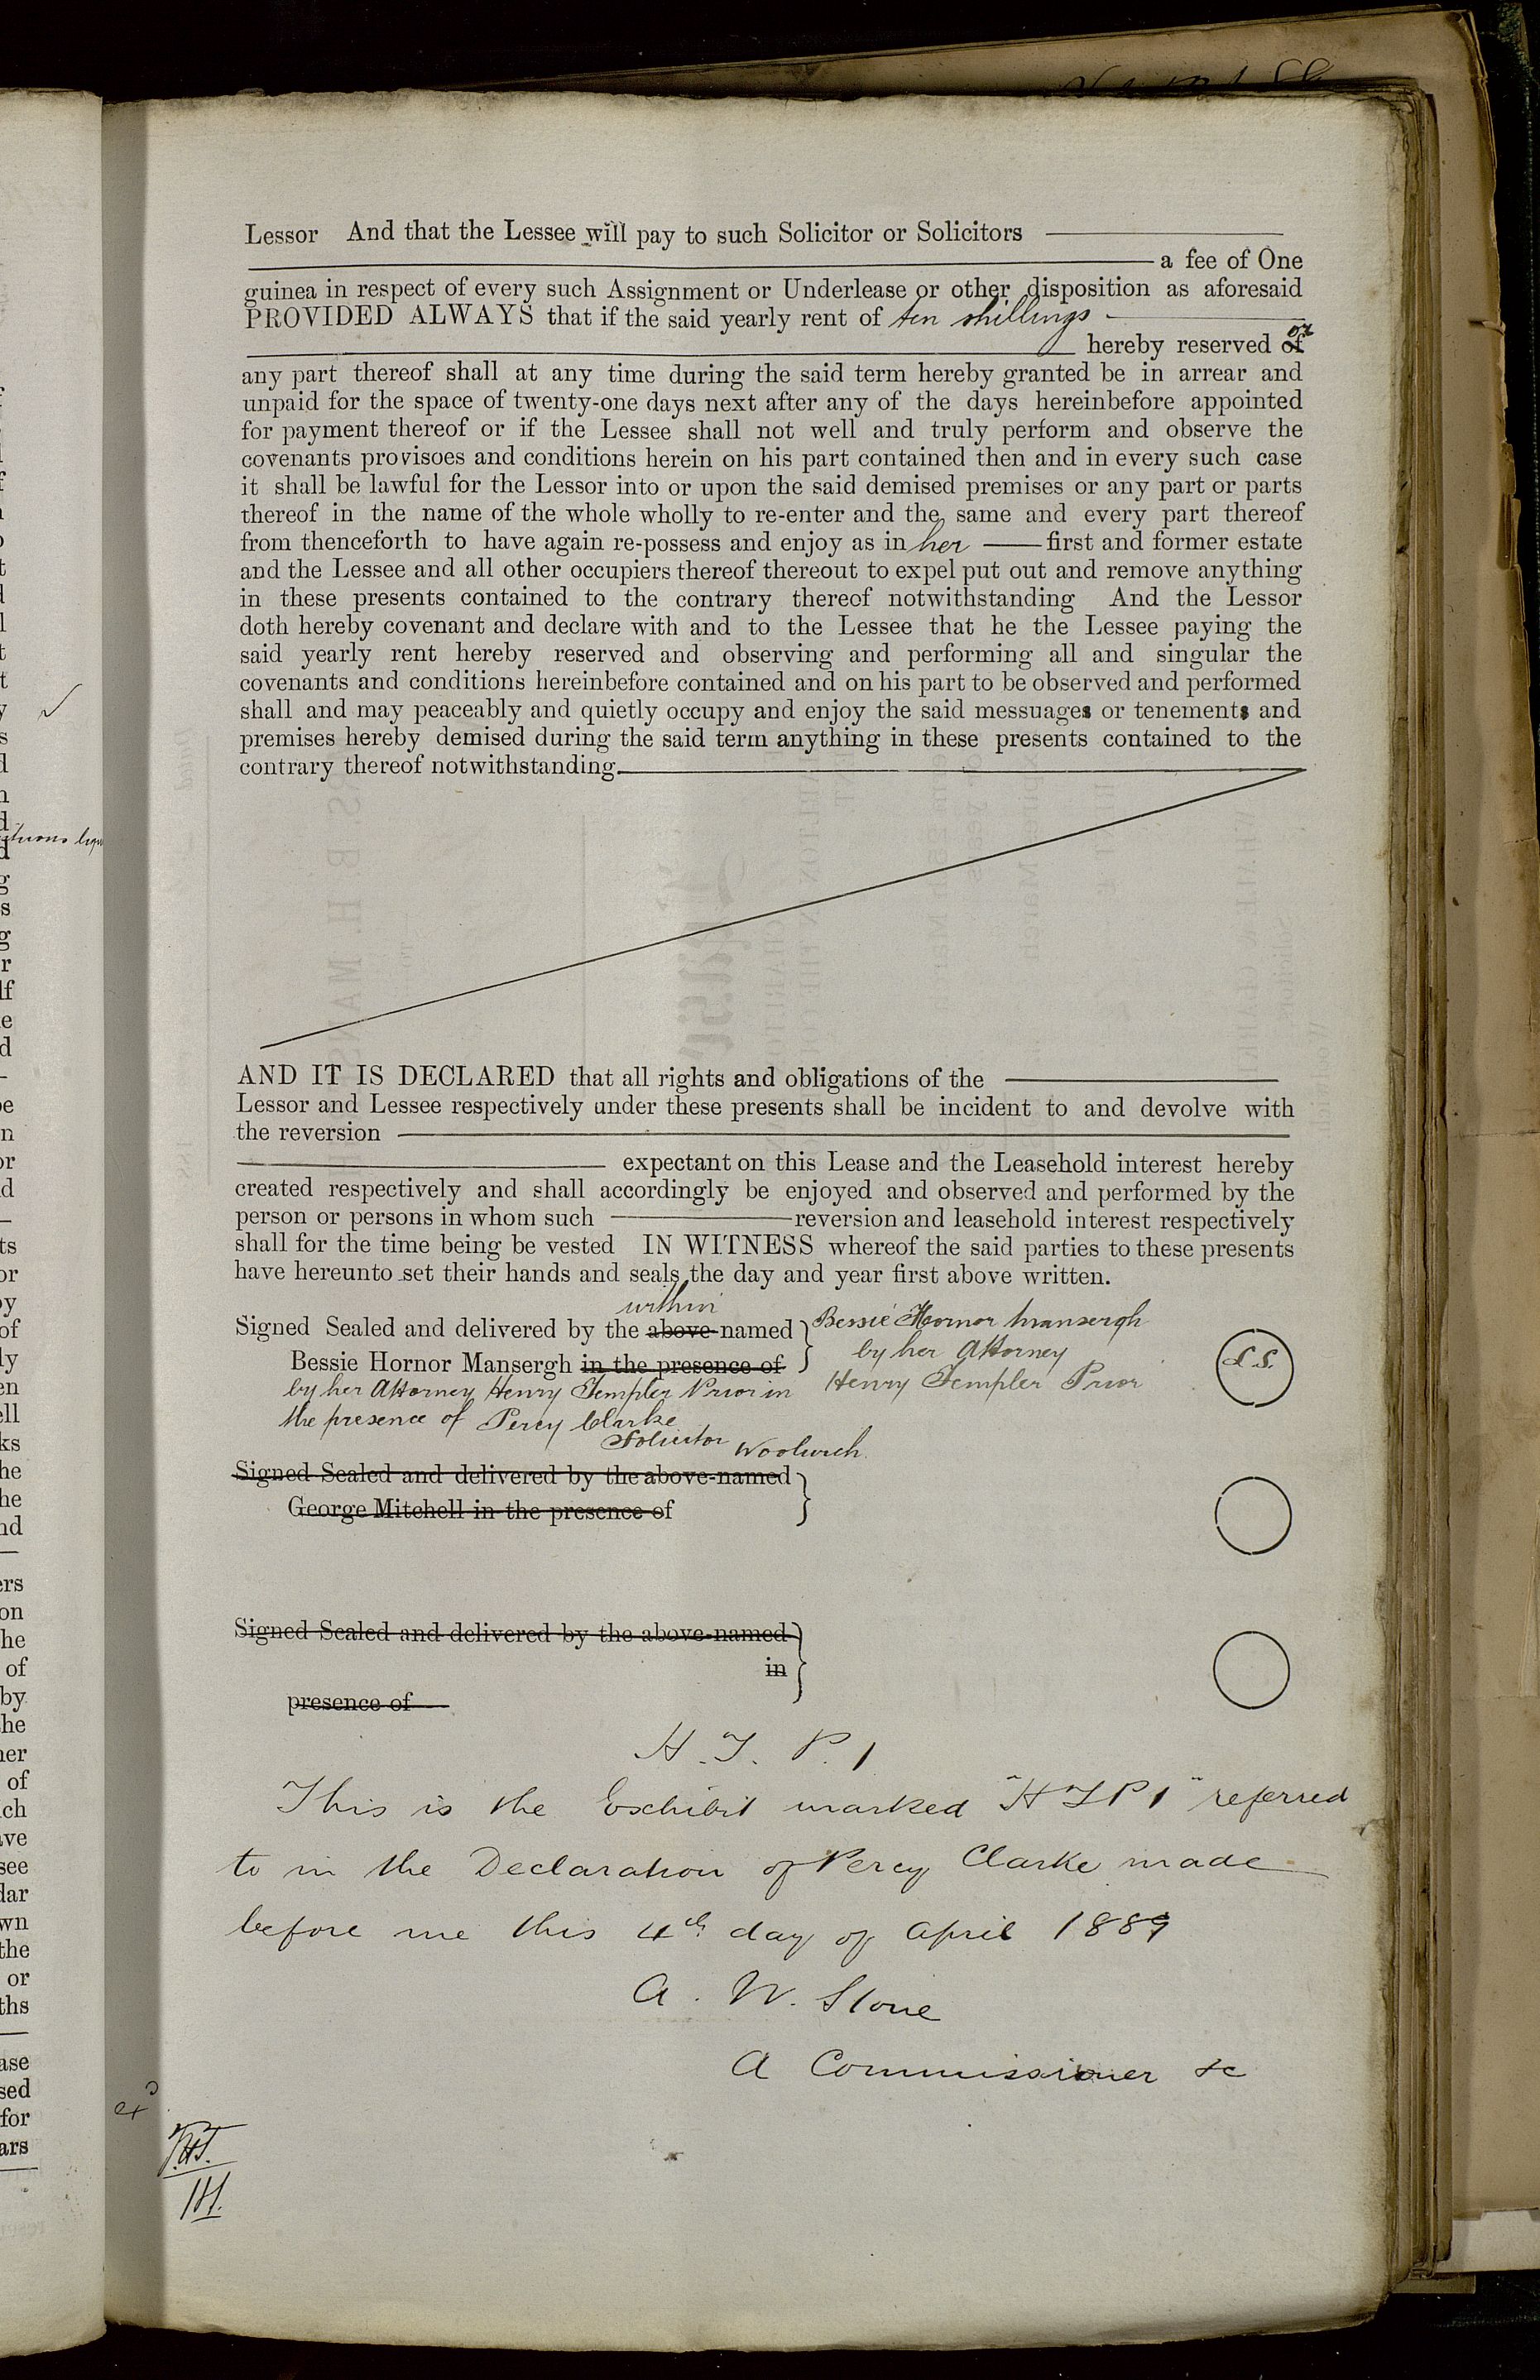 Lessor And that the Lessee will pay to such Solicitor or Solicitors
a fee of One
guinea in respect of every such Assignment or Underlease or other disposition as aforesaid
PROVIDED ALWAYS that if the said yearly rent of ten shillings
hereby reserved of or
any part thereof shall at any time during the said term hereby granted be in arrear and
unpaid for the space of twenty-one days next after any of the days hereinbefore appointed
for payment thereof or if the Lessee shall not well and truly perform and observe the
covenants provisoes and conditions herein on his part contained then and in every such case
it shall be lawful for the Lessor into or upon the said demised premises or any part or parts
thereof in the name of the whole wholly to re-enter and the same and every part thereof
from thenceforth to have again re-possess and enjoy as in her first and former estate
and the Lessee and all other occupiers thereof thereout to expel put out and remove anything
in these presents contained to the contrary thereof notwithstanding And the Lessor
doth hereby covenant and declare with and to the Lessee that he the Lessee paying the
said yearly rent hereby reserved and observing and performing all and singular the
covenants and conditions hereinbefore contained and on his part to be observed and performed
shall and may peaceably and quietly occupy and enjoy the said messuages or tenements and
premises hereby demised during the said term anything in these presents contained to the
contrary thereof notwithstanding.
AND IT IS DECLARED that all rights and obligations of the
Lessor and Lessee respectively under these presents shall be incident to and devolve with
the reversion
expectant on this Lease and the Leasehold interest hereby
created respectively and shall accordingly be enjoyed and observed and performed by the
person or persons in whom such reversion and leasehold interest respectively
shall for the time being be vested IN WITNESS whereof the said parties to these presents
have hereunto set their hands and seals the day and year first above written.
within
Signed Sealed and delivered by the above-named
Bessie Hornor Mansergh in the presence of
by her Attorney Henry Templer Prior in
the presence of Percy Clarke
Solicitor Woolwich
Bessie Hornor Mansergh
by her Attorney
Henry Templer Prior
L.S.
Signed Sealed and delivered by the above-named
George Mitchell in the presence of
Signed Sealed and delivered by the above-named
in
presence of
H. T. P. 1
This is the Exhibit marked "HTP1" referred
to in the Declaration of Percy Clarke made
before me this 4th day of April 1889
A. W. Stone
A Commissioner &c